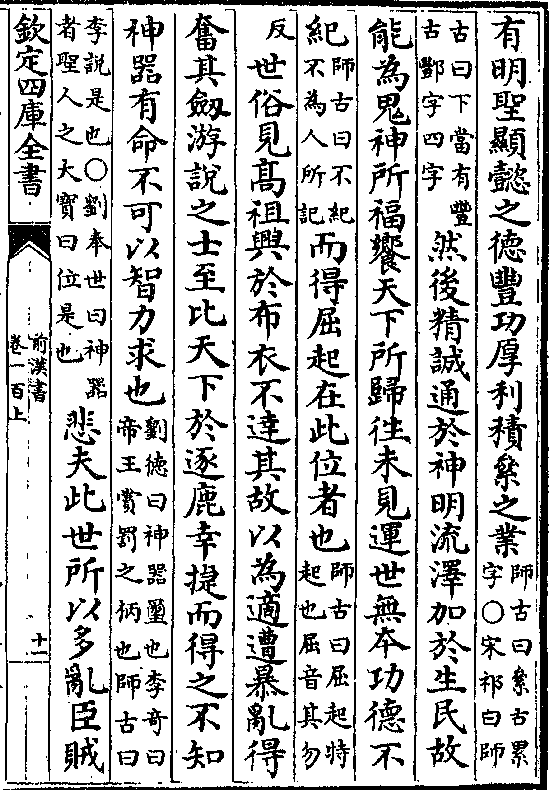 有明聖顯懿之德豐功厚利積絫之業師古曰絫古累字○宋祁曰師
古曰下當有豐古酆字四字然後精誠通於神明流澤加於生民故
能為鬼神所福饗天下所歸徃未見運世無本功德不
紀師古曰不紀不為人所記而得屈起在此位者也師古曰屈起特起也屈音其勿
反世俗見髙祖興於布衣不達其故以為適遭暴亂得
奮其劔游說之士至比天下於逐鹿幸捷而得之不知
神器有命不可以智力求也劉德曰神器璽也李竒曰帝王賞罰之柄也師古曰
李說是也○劉奉世曰神器者聖人之大寶曰位是也悲夫此世所以多亂臣賊
欽定四庫全書
前漢書
卷一百上
十一